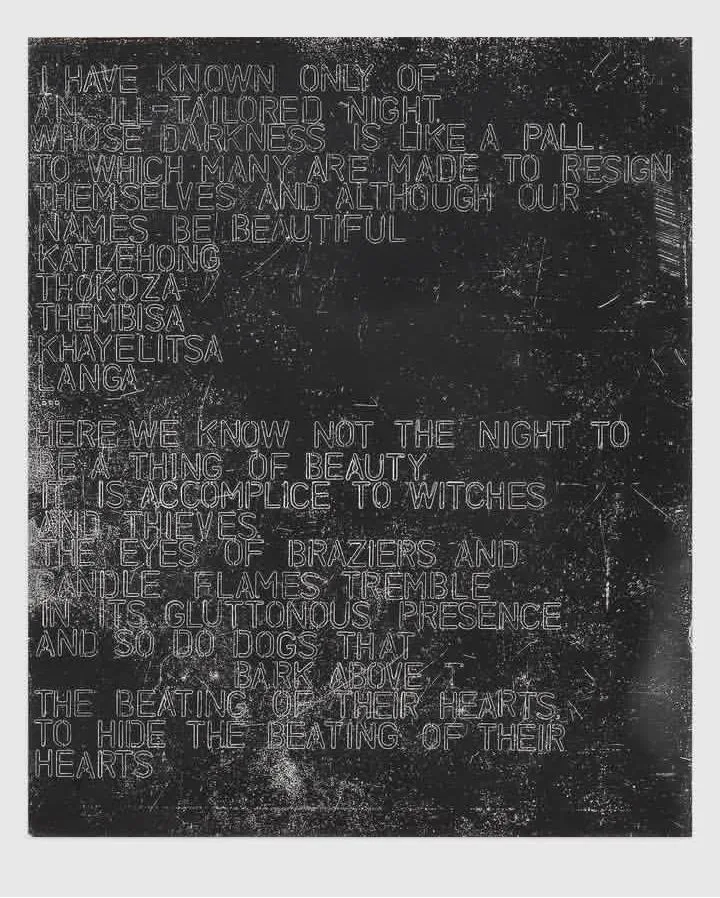 I HAVE KNOWN ONLY OF
AN ILL-TAILORED NIGHT
WHOSE DARKNESS IS LIKE A PALL
TO WHICH MANY ARE MADE TO RESIGN
THEMSELVES AND ALTHOUGH OUR
NAMES BE BEAUTIFUL
KATLEHONG
THOKOZA
THEMBISA
KHAYELITSA
LANGA
HERE WE KNOW NOT THE NIGHT TO
BE A THING OF BEAUTY
IT IS ACCOMPLICE TO WITCHES
AND THIEVES
THE EYES OF BRAZIERS AND
CANDLE FLAMES TREMBLE
IN ITS GLUTTONOUS PRESENCE
AND SO DO DOGS THAT
BARK ABOVE T
THE BEATING OF THEIR HEARTS,
TO HIDE THE BEATING OF THEIR
HEARTS